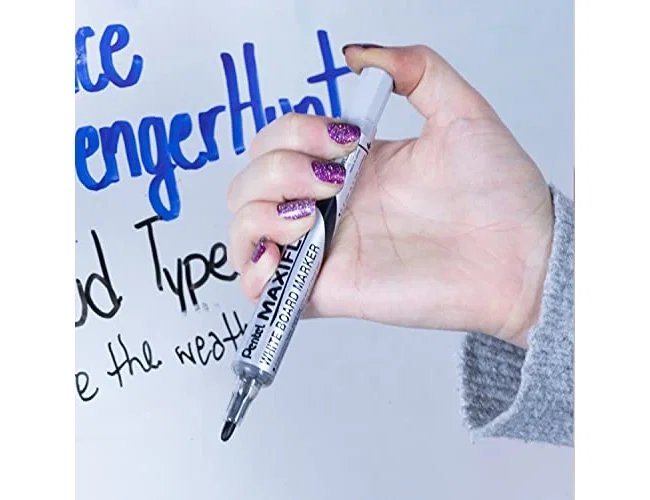 ce
engerHunt
d Type
e the weath
Pentel MAXIFL
WHITE BOARD MARKER